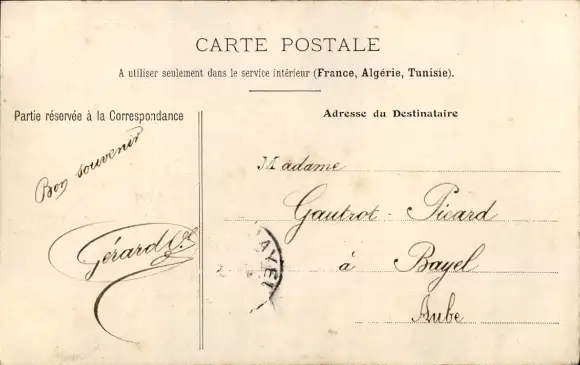 CARTE POSTALE
A utiliser seulement dans le service intérieur (France, Algérie, Tunisie).
Partie réservée à la Correspondance
Adresse du Destinataire
Bon souvenir
Gérard
Madame
Gautrot - Picard
à Bayel
Aube
BAYEL